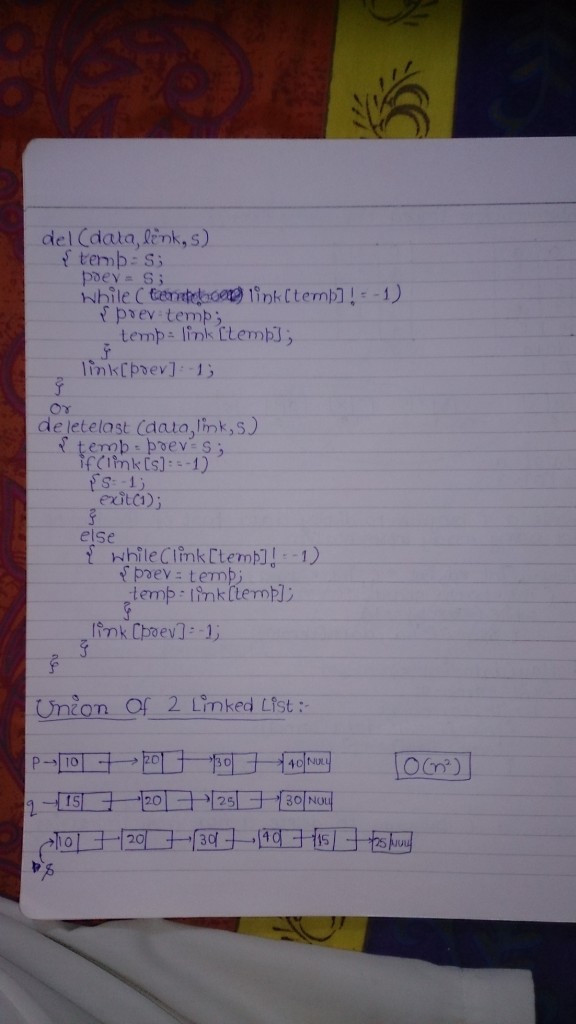 del (data, link, s)
{ temp = s;
prev = s;
while ( link[temp] != -1)
{ prev = temp;
temp = link [temp];
}
link[prev] = -1;
}
or
deletelast (data, link, s)
{ temp = prev = s;
if (link[s] == -1)
{ s = -1;
exit(1);
}
else
{ while (link[temp] != -1)
{ prev = temp;
temp = link[temp];
}
link [prev] = -1;
}
}
Union Of 2 Linked List :-
P → 10 → 20 → 30 → 40 NULL O(n²)
q → 15 → 20 → 25 → 30 NULL
10 → 20 → 30 → 40 → 15 → 25 NULL
s